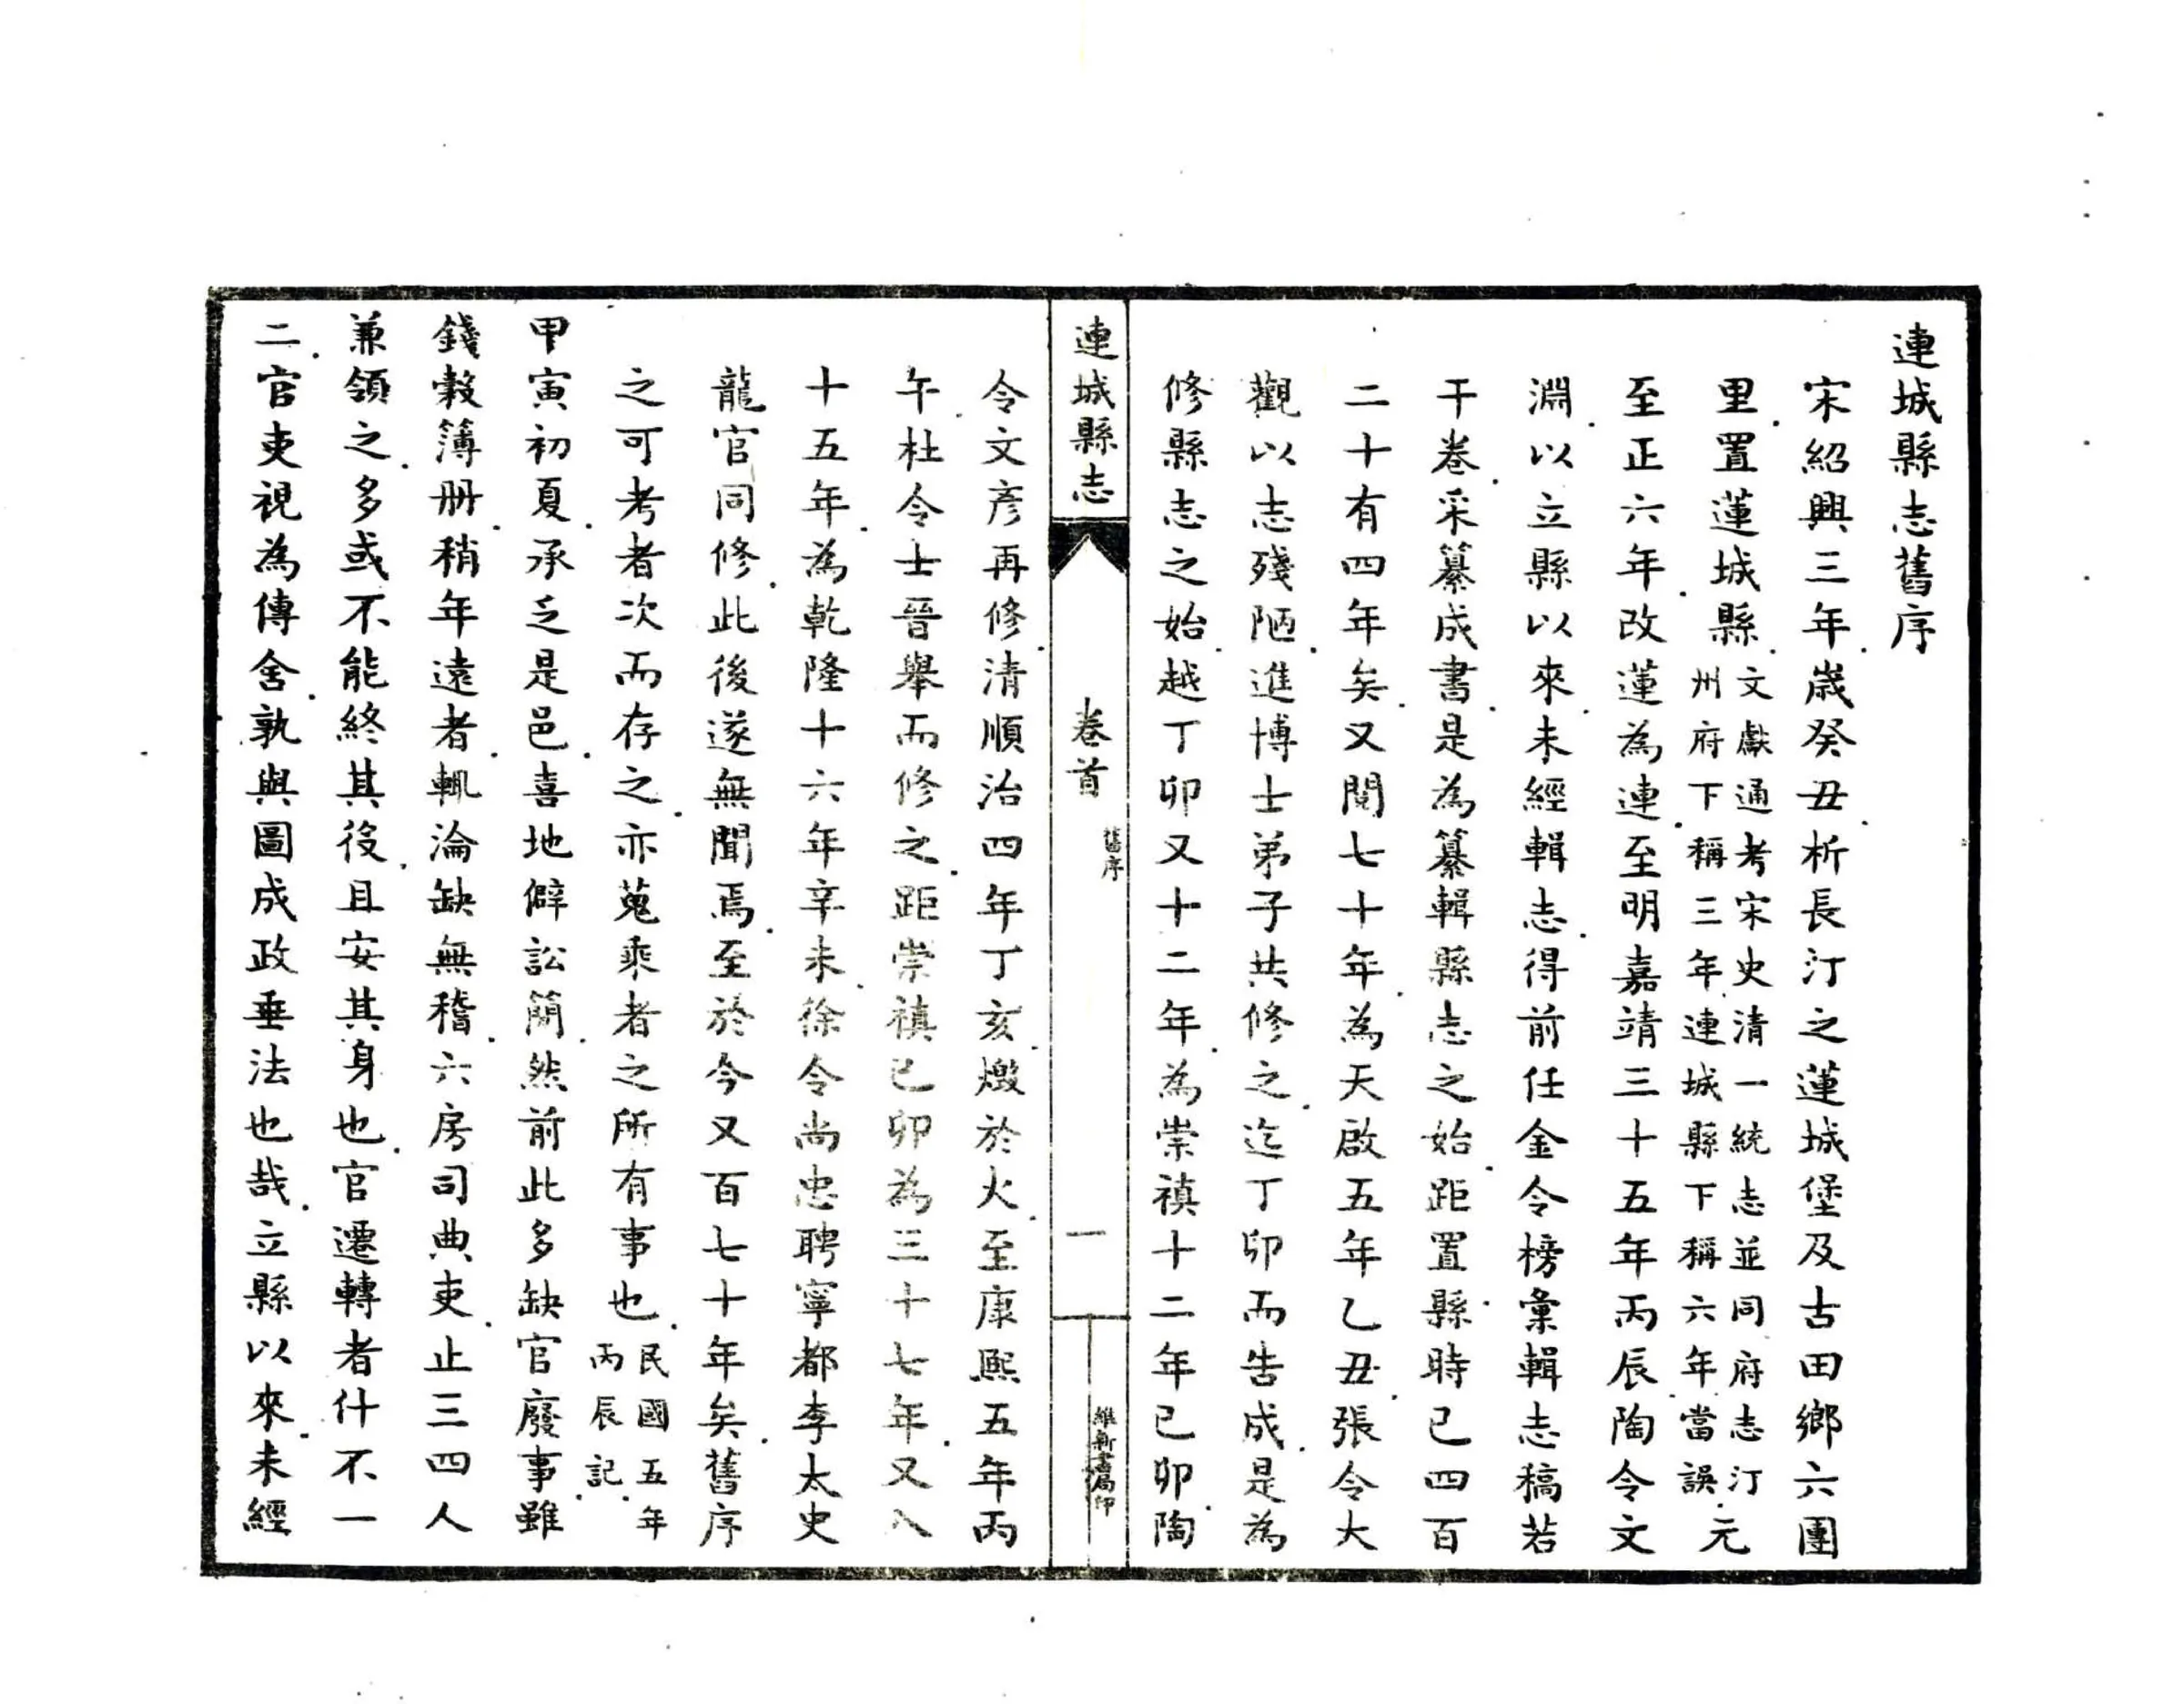 連城縣志舊序
宋紹興三年歲癸丑析長汀之蓮城堡及古田鄉六團
里置蓮城縣文獻通考宋史清一統志並同府志汀州府下稱三年連城縣下稱六年當誤元
至正六年改蓮為連至明嘉靖三十五年丙辰陶令文
淵以立縣以來未經輯志得前任金令榜彙輯志稿若
干卷采纂成書是為纂輯縣志之始距置縣時已四百
二十有四年矣又閱七十年為天啟五年乙丑張令大
觀以志殘陋進博士弟子共修之迄丁卯而告成是為
修縣志之始越丁卯又十二年為崇禎十二年己卯陶
連城縣志 卷首 舊序 一 維新書局印
令文彥再修清順治四年丁亥燬於火至康熙五年丙
午杜令士晉舉而修之距崇禎己卯為三十七年又八
十五年為乾隆十六年辛未徐令尚忠聘寧都李太史
龍官同修此後遂無聞焉至於今又百七十年矣舊序
之可考者次而存之亦蒐乘者之所有事也民國五年丙辰記
甲寅初夏承乏是邑喜地僻訟簡然前此多缺官廢事雖
錢穀簿册稍年遠者輒淪缺無稽六房司典吏止三四人
兼領之多或不能終其役且安其身也官遷轉者什不一
二官吏視為傳舍孰與圖成政垂法也哉立縣以來未經